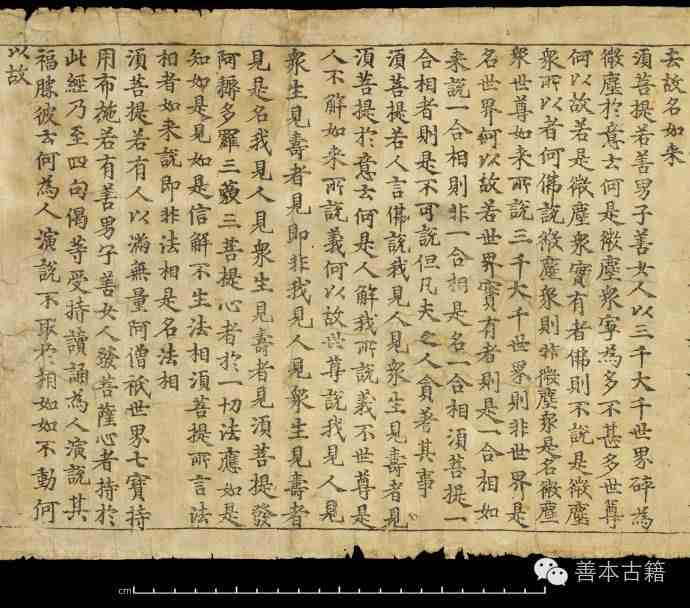 去故名如来
須菩提若善男子善女人以三千大千世界碎為
微塵於意云何是微塵衆寧為多不甚多世尊
何以故若是微塵衆實有者佛則不說是微塵
衆所以者何佛說微塵衆則非微塵衆是名微塵
衆世尊如来所說三千大千世界則非世界是
名世界何以故若世界實有者則是一合相如
来說一合相則非一合相是名一合相須菩提一
合相者則是不可說但凡夫之人貪著其事
須菩提若人言佛說我見人見衆生見壽者見
須菩提於意云何是人解我所說義不世尊是
人不解如来所說義何以故世尊說我見人見
衆生見壽者見即非我見人見衆生見壽者
見是名我見人見衆生見壽者見須菩提發
阿耨多羅三藐三菩提心者於一切法應如是
知如是見如是信解不生法相須菩提所言法
相者如来說即非法相是名法相
須菩提若有人以滿無量阿僧祇世界七寶持
用布施若有善男子善女人發菩薩心者持於
此經乃至四句偈等受持讀誦為人演說其
福勝彼云何為人演說不取於相如如不動何
以故
cm
善本古籍